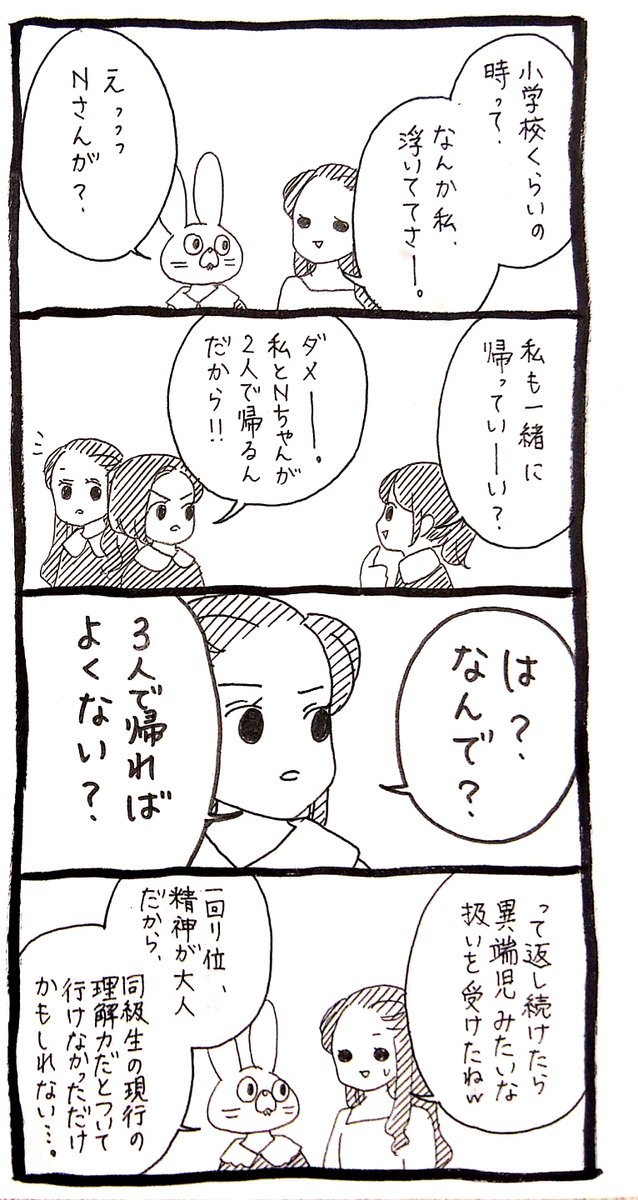 小学校くらいの
時って、
なんか私、
浮いててさー。
えっっっ
Nさんが？
私も一緒に
帰ってい―い？
ダメ――。
私とNちゃんが
2人で帰るん
だから!!
は？
なんで？
3人で帰れば
よくない？
って返し続けたら
異端児みたいな
扱いを受けたねw
一回り位、
精神が大人
だから、
同級生の現行の
理解力だとついて
行けなかっただけ
かもしれない…。